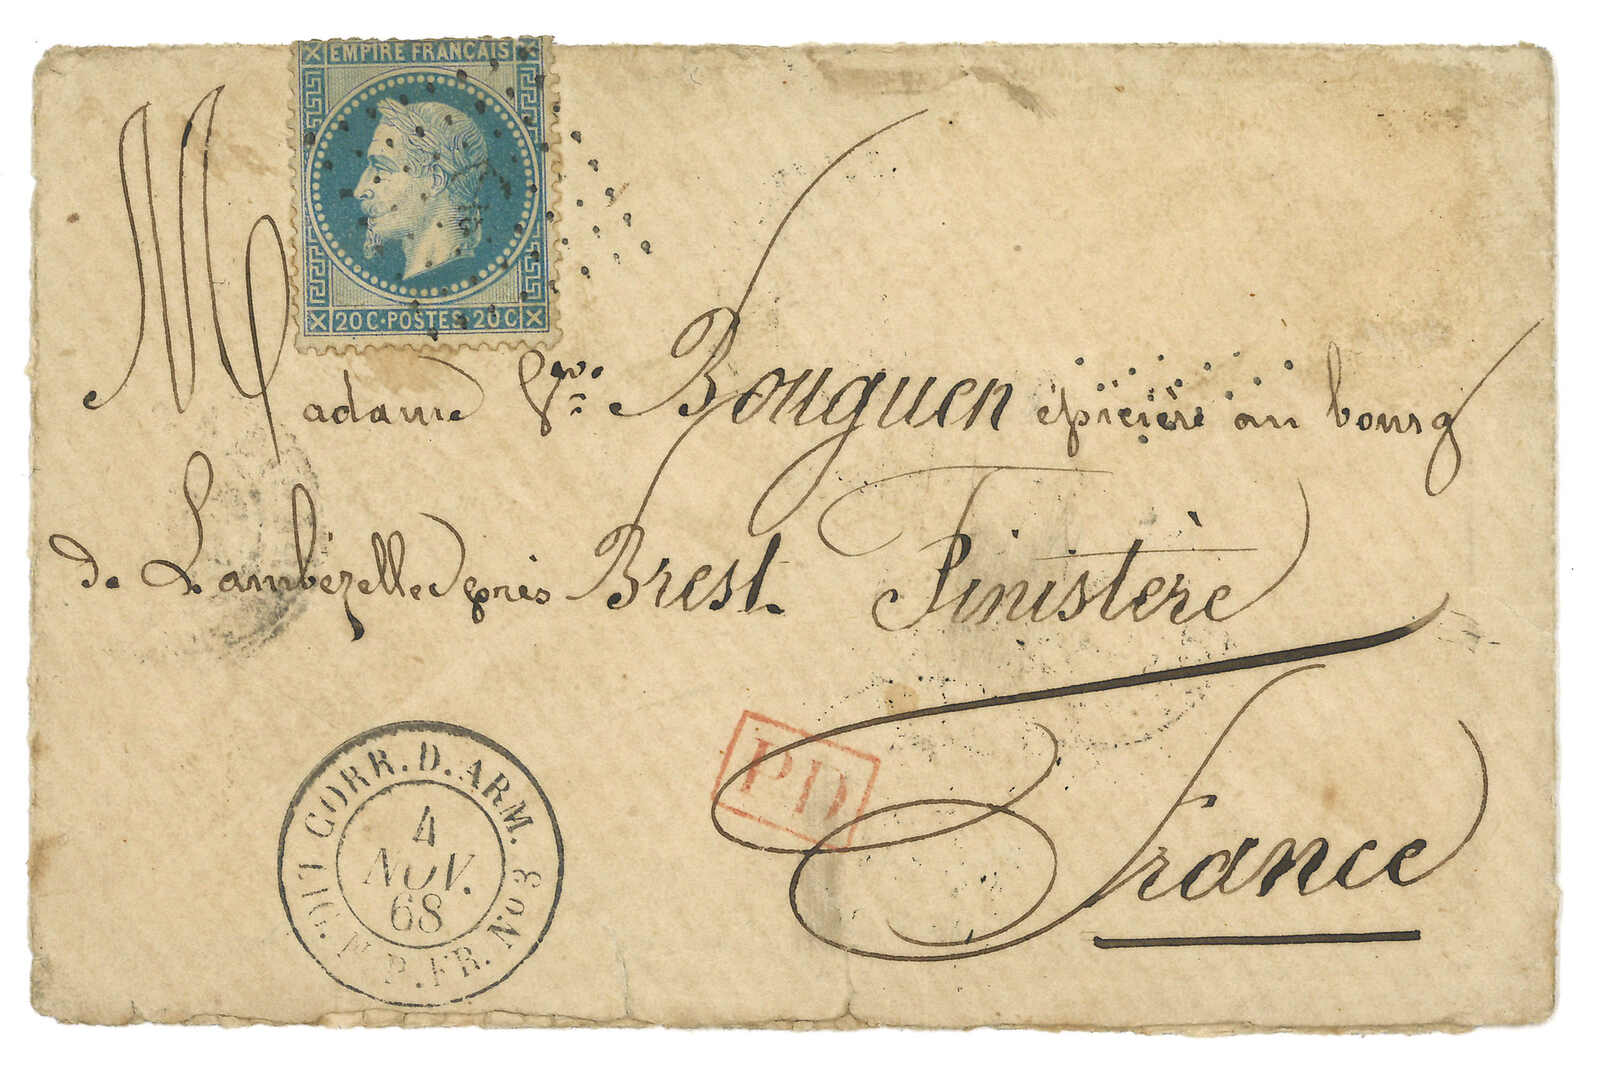 EMPIRE FRANÇAIS
20 C · POSTES 20 C
Madame Vve Bouguen épicière au bourg
de Lambézellec près Brest. Finistère
France
PD
CORR. D. ARM.
LIG. N P. FR. No 3
4
NOV.
68